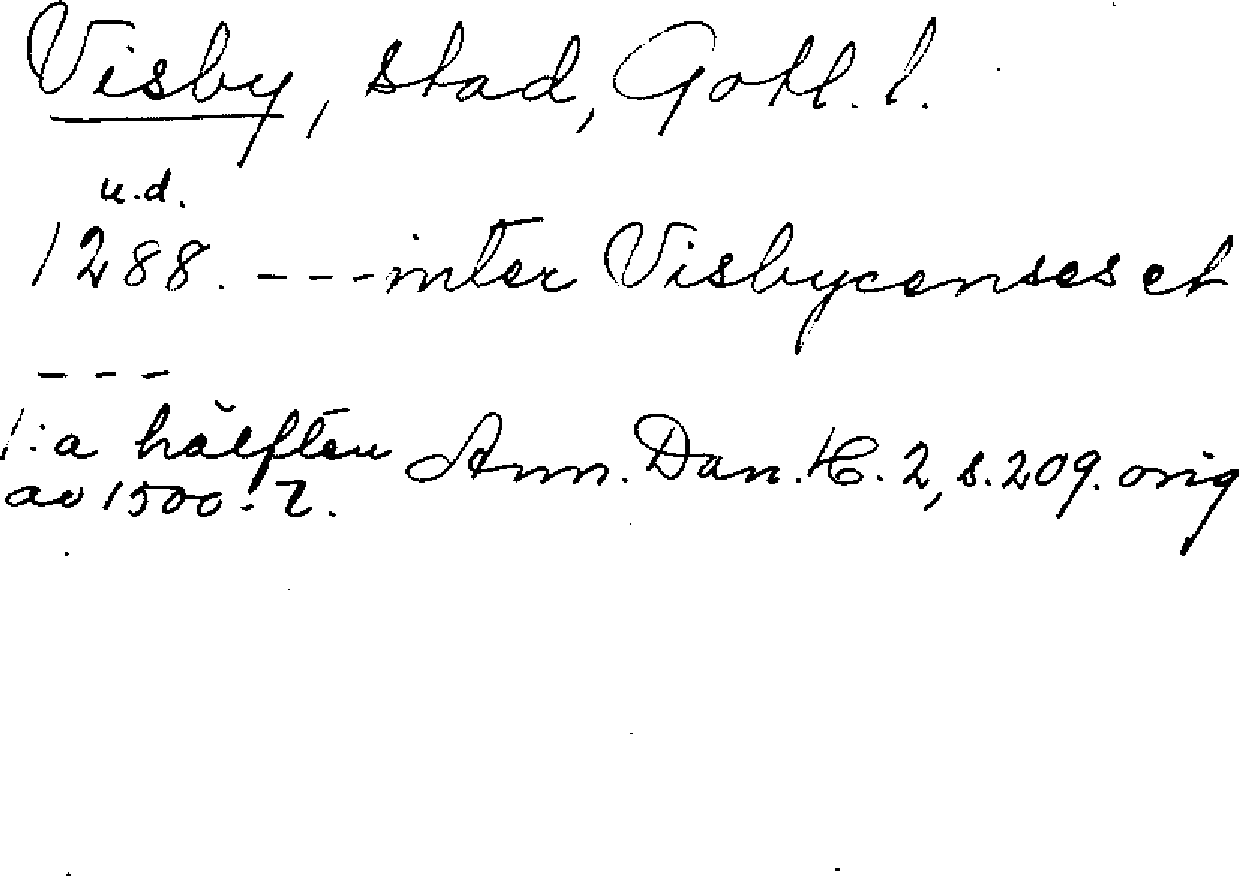 Visby, stad, Gotl. l.
u.d.
1288. ---inter Visbycenses et
---
1:a hälften Ann. Dan. H. 2, s. 209. orig
av 1500-t.